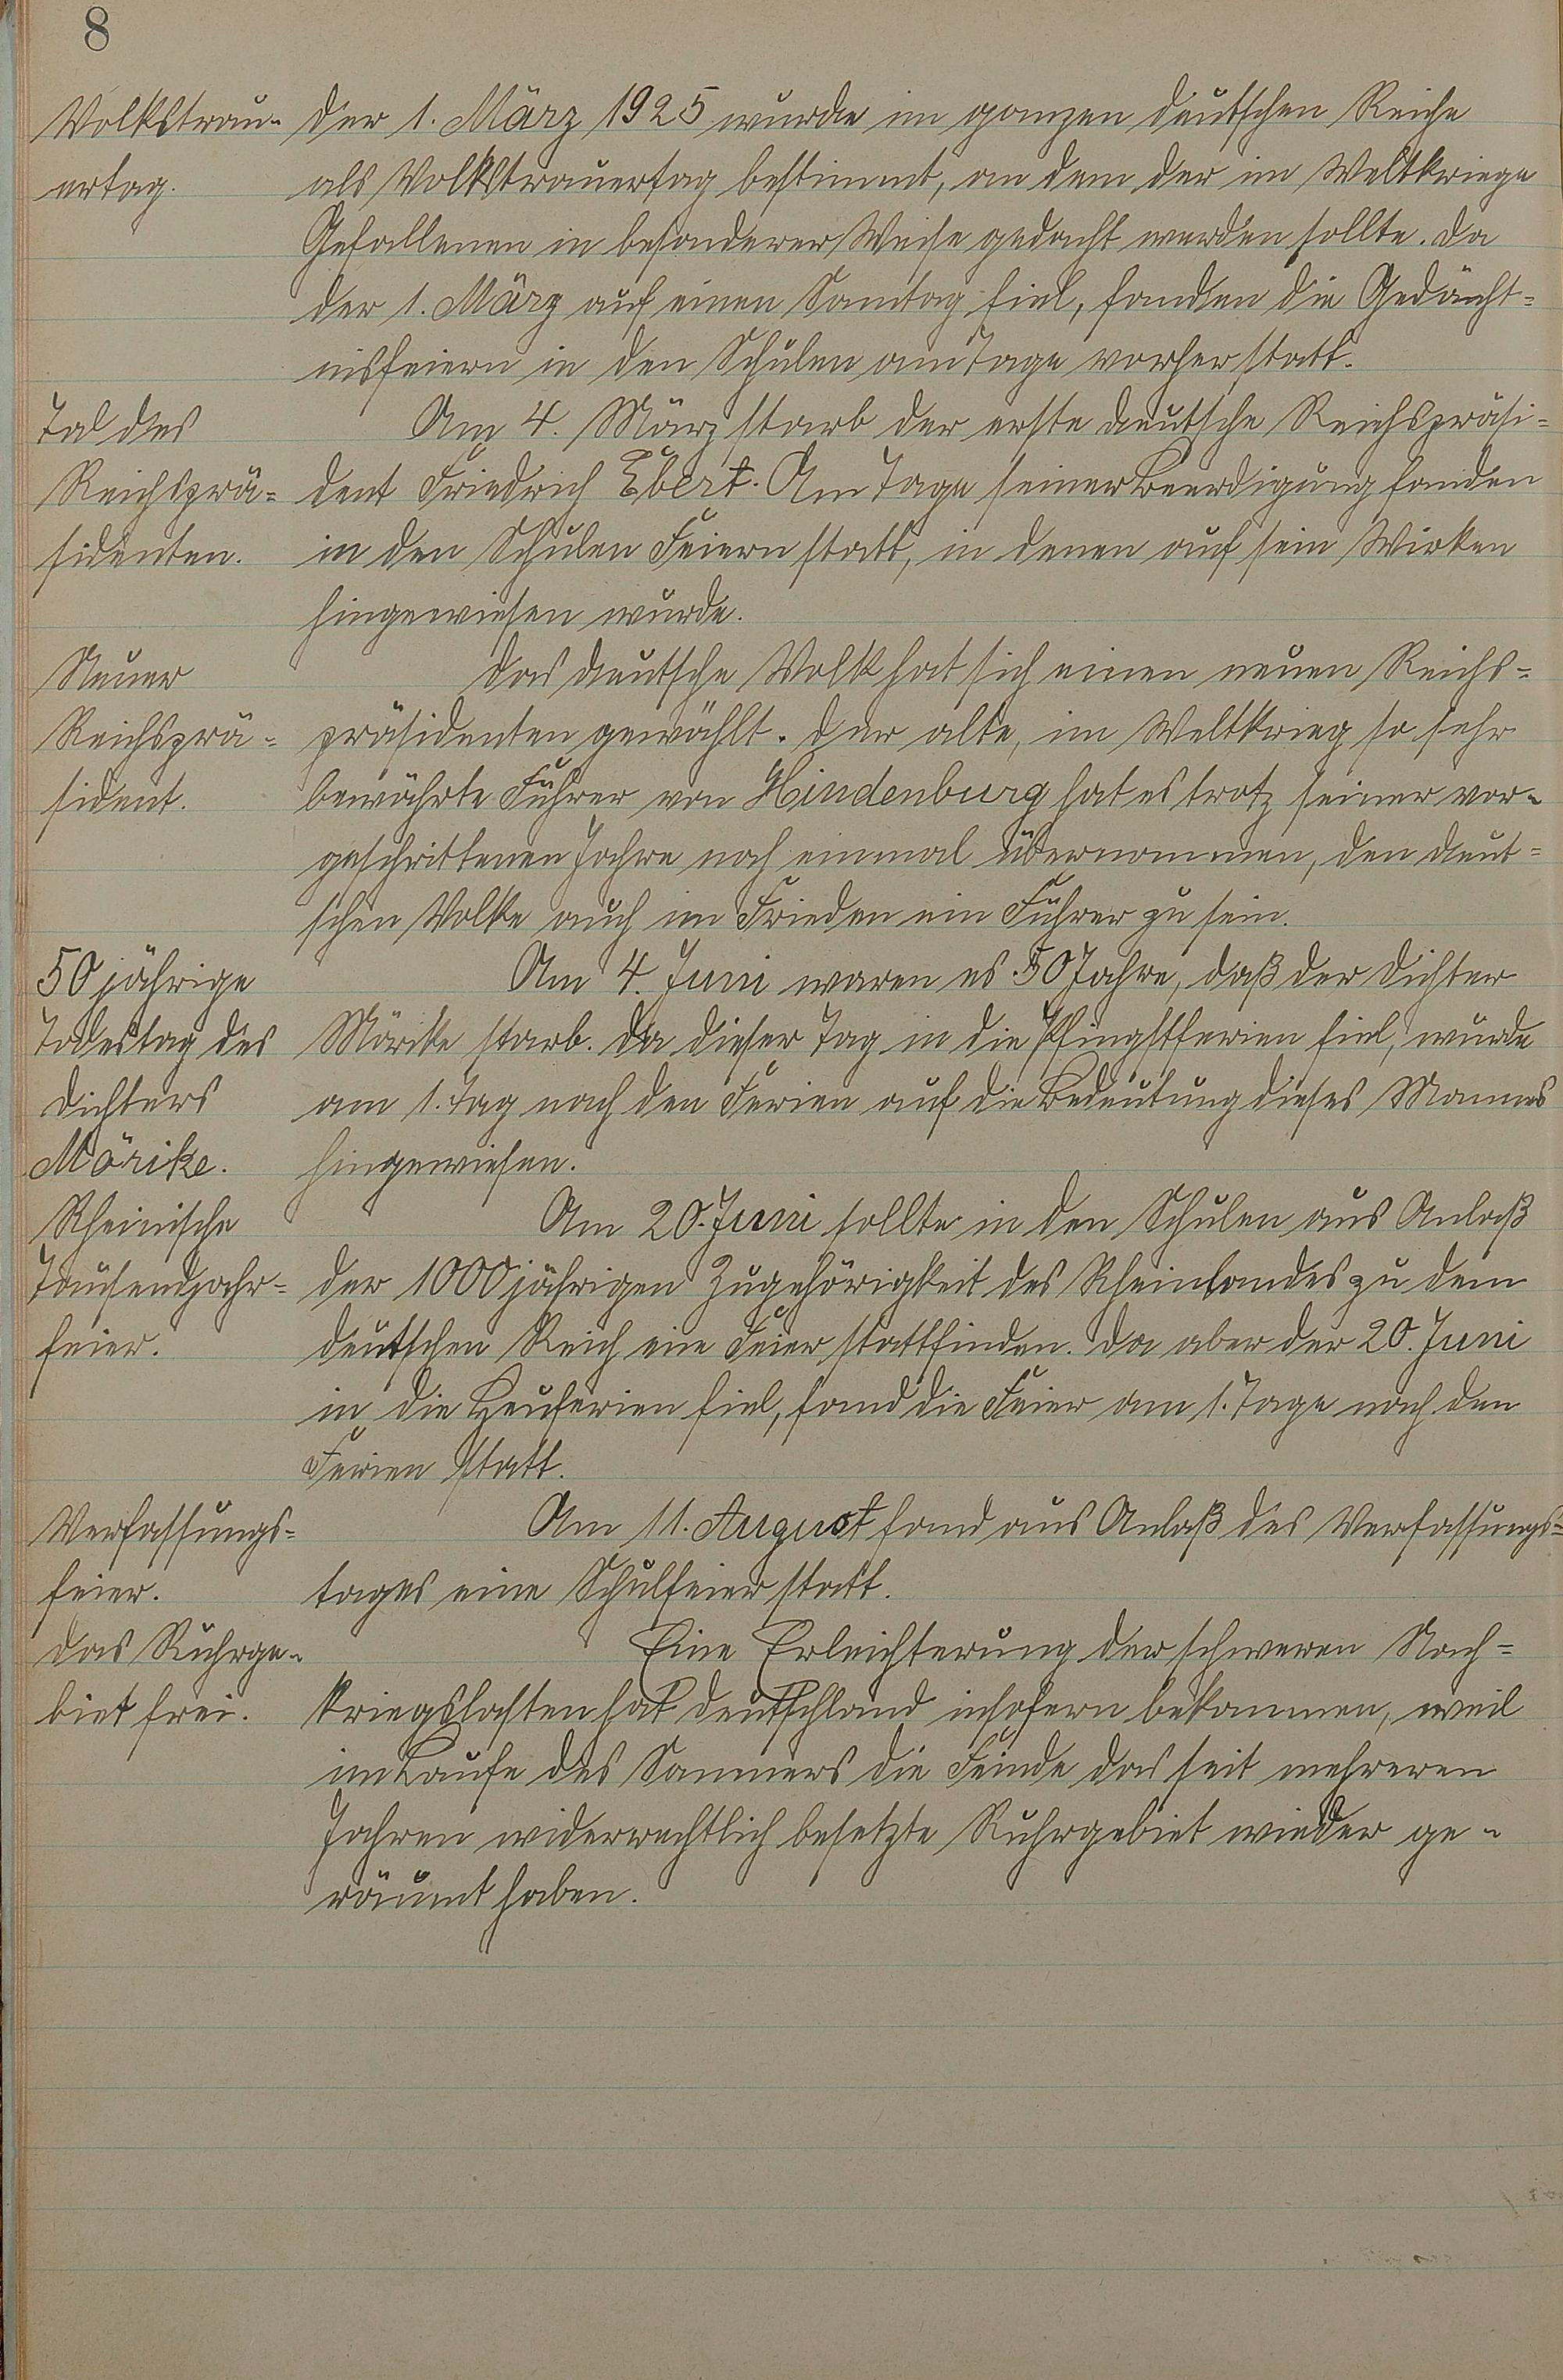 8
Volkstrau-
ertag.
Der 1. März 1925 wurde im ganzen deutschen Reiche
als Volkstrauertag bestimmt, an dem der im Weltkriege
Gefallenen in besonderer Weise gedacht werden sollte. Da
der 1. März auf einen Sonntag fiel, fanden die Gedächt-
nisfeiern in den Schulen am Tage vorher statt.
Tod des
Reichsprä-
sidenten.
Am 4. März starb der erste deutsche Reichspräsi-
dent Friedrich Ebert. Am Tage seiner Beerdigung fanden
in den Schulen Feiern statt, in denen auf sein Wirken
hingewiesen wurde.
Neuer
Reichsprä-
sident.
Das deutsche Volk hat sich einen neuen Reichs-
präsidenten gewählt. Der alte, im Weltkrieg so sehr
bewährte Führer von Hindenburg hat es trotz seiner vor-
geschrittenen Jahre noch einmal übernommen, den deut-
schen Volke auch im Frieden ein Führer zu sein.
50 jährige
Todestag des
Dichters
Mörike.
Am 4. Juni waren es 50 Jahre, daß der Dichter
Mörike starb. Da dieser Tag in die Pfingstferien fiel, wurde
am 1. Tag nach den Ferien auf die Bedeutung dieses Mannes
hingewiesen.
Rheinische
Tausendjahr-
feier.
Am 20. Juni sollte in den Schulen aus Anlaß
der 1000 jährigen Zugehörigkeit des Rheinlandes zu dem
deutschen Reich eine Feier stattfinden. Da aber der 20. Juni
in die Heuferien fiel, fand die Feier am 1. Tage nach den
Ferien statt.
Verfassungs-
feier.
Am 11. August fand aus Anlaß des Verfassungs-
tages eine Schulfeier statt.
Das Ruhrge-
biet frei.
Eine Erleichterung der schweren Nach-
kriegslasten hat Deutschland insofern bekommen, weil
im Laufe des Sommers die Feinde das seit mehreren
Jahren widerrechtlich besetzte Ruhrgebiet wieder ge-
räumt haben.